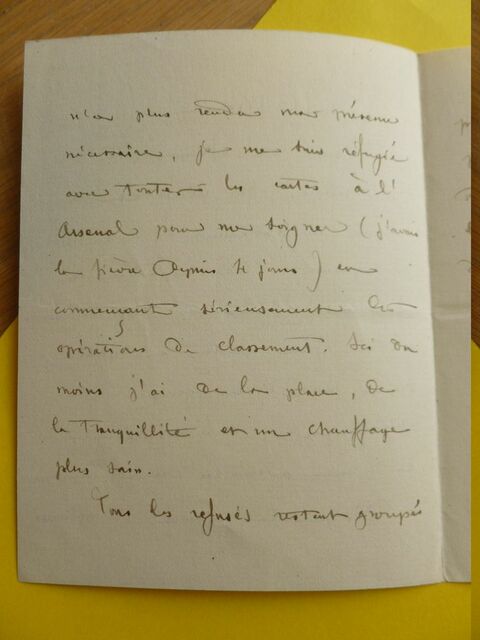 n'a plus rendu ma présence
nécessaire, je me suis réfugié
avec toutes les cartes à l'
Arsenal pour me soigner (j'avais
la fièvre depuis 4 jours) en
commencant sérieusement les
opérations de classement. Ici du
moins j'ai de la place, de
la tranquillité et un chauffage
plus sain.
Tous les refusés restent groupés